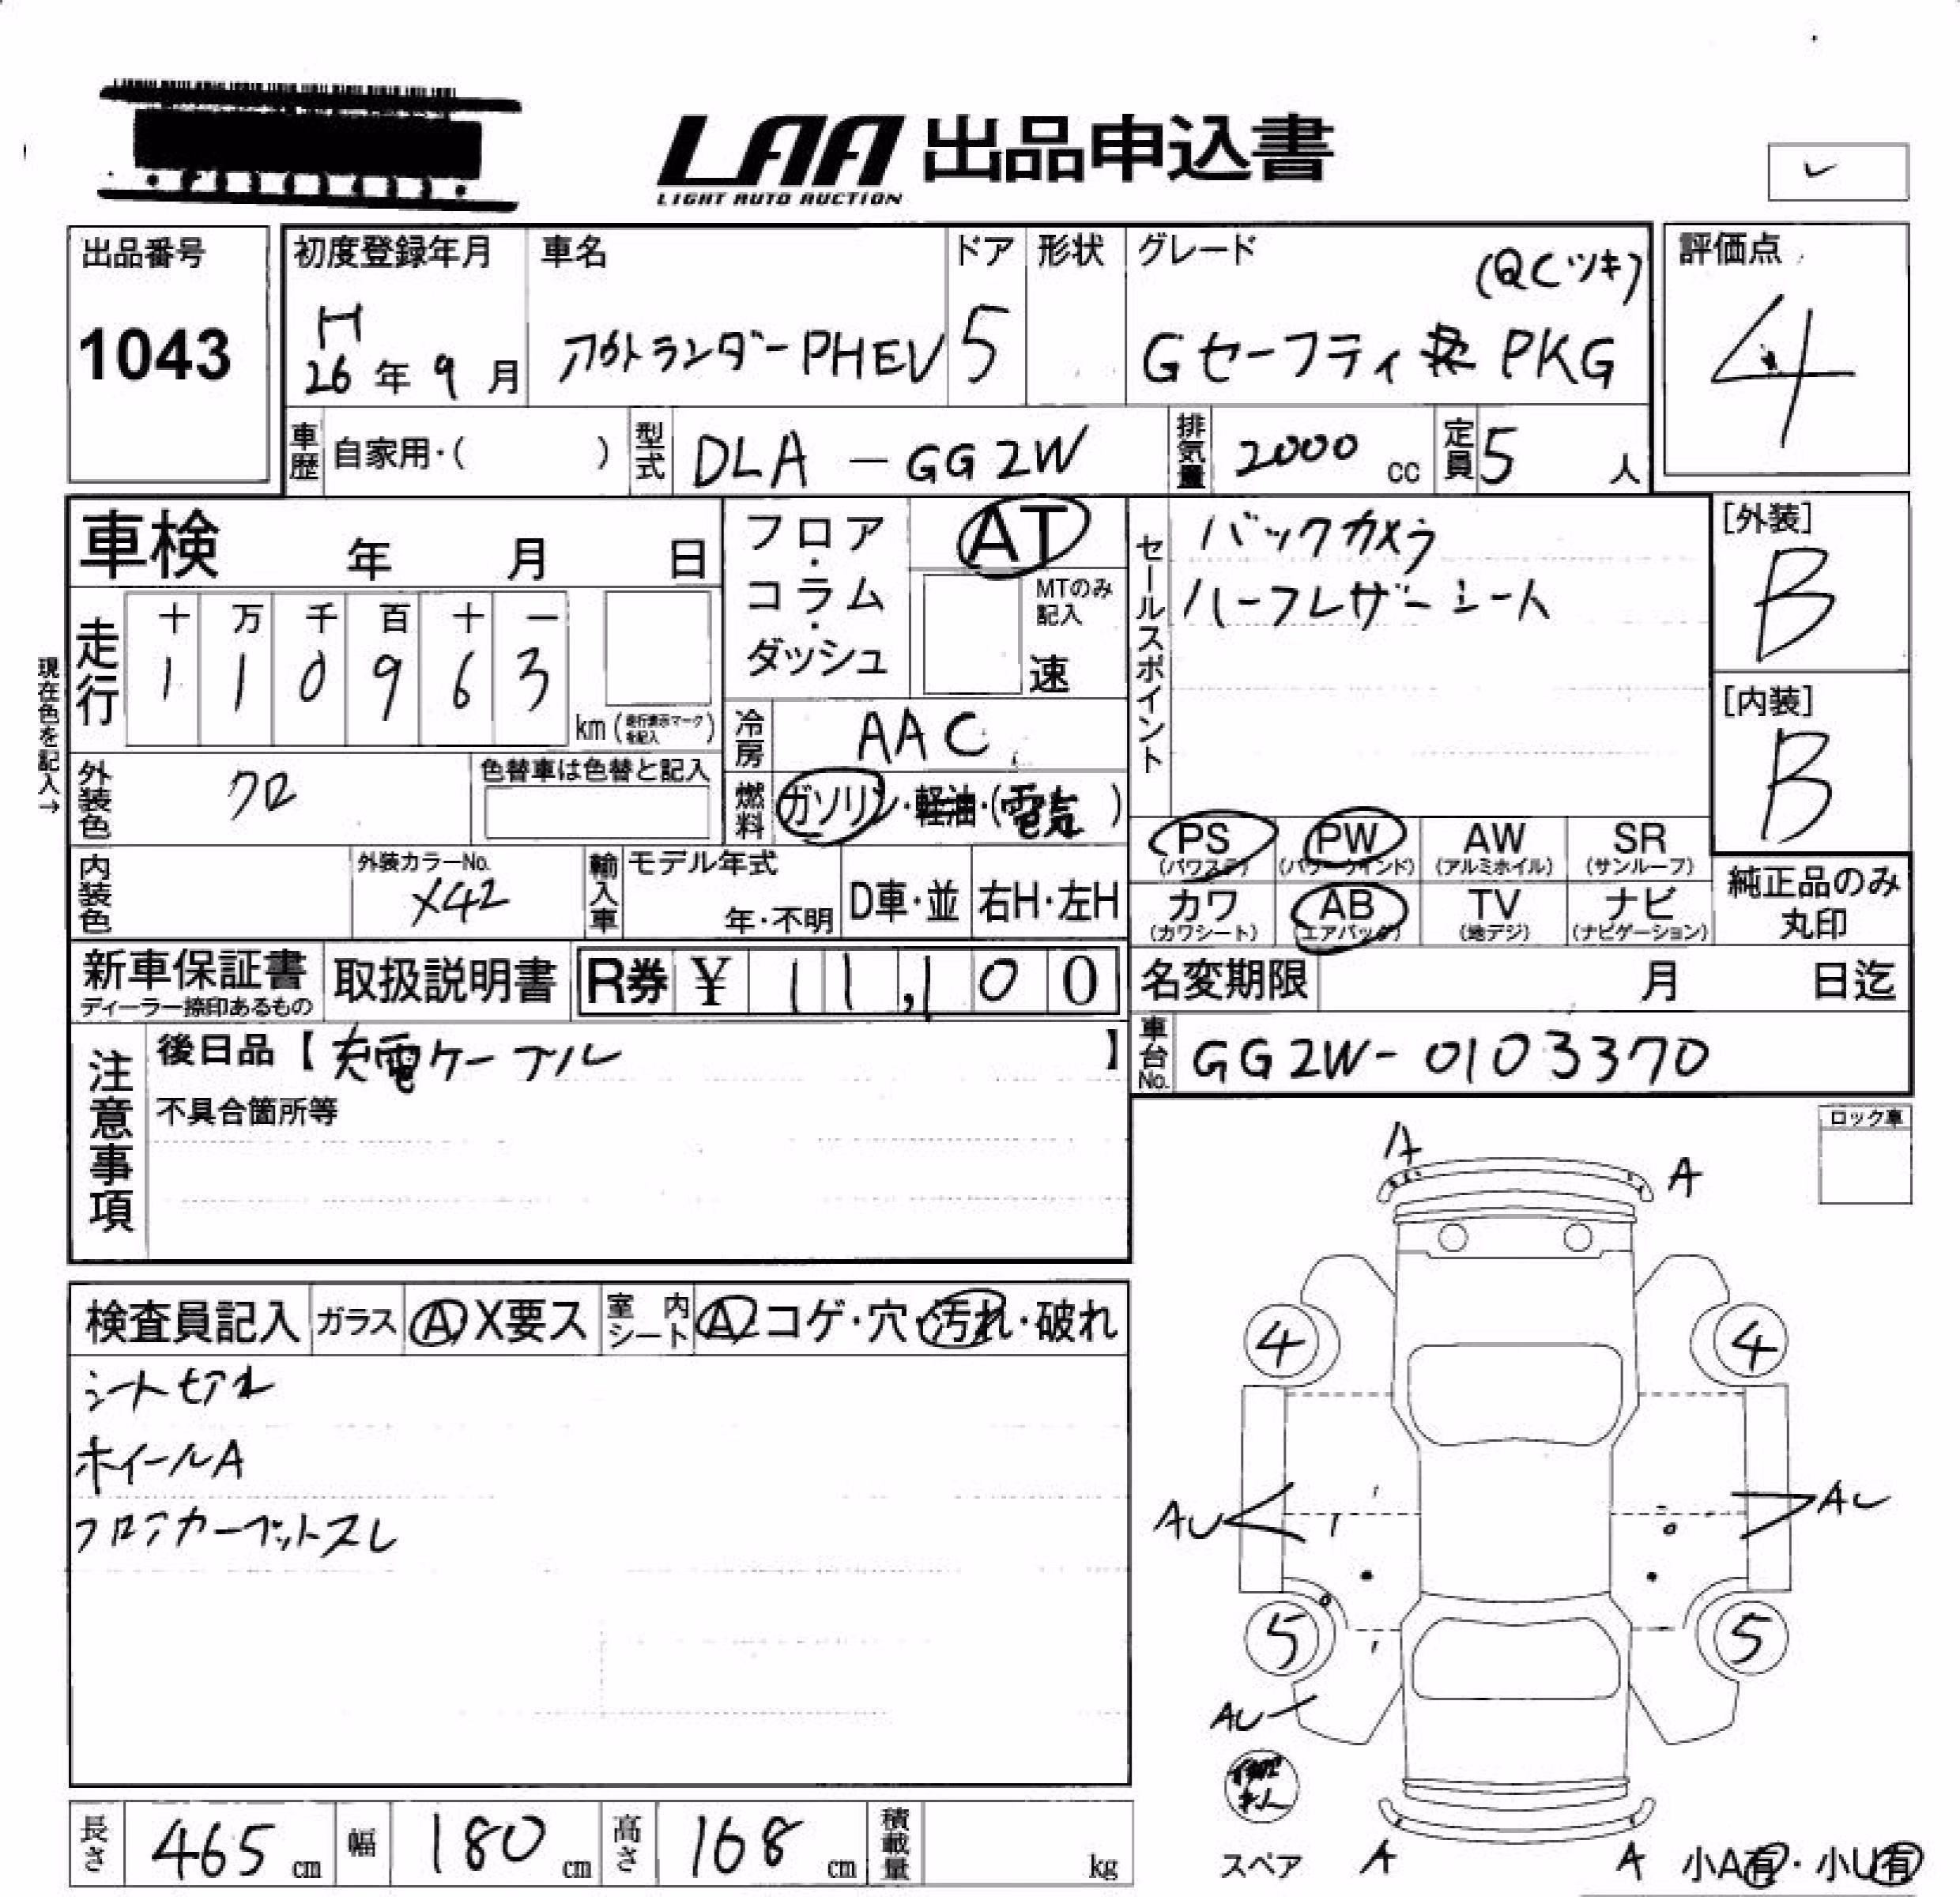 LAA 出品申込書
LIGHT AUTO AUCTION
出品番号
1043
初度登録年月
H
26年9月
車名
アウトランダーPHEV
ドア
5
形状
グレード
(QCツキ)
Gセーフティ PKG
評価点
4
車歴 自家用・( )
型式 DLA-GG2W
排気量 2000 cc
定員 5 人
車検 年 月 日
フロア・コラム・ダッシュ
AT
MTのみ記入
速
セールスポイント
バックカメラ
ハーフレザーシート
[外装]
B
[内装]
B
現在色を記入→
走行
十 万 千 百 十 一
1 1 0 9 6 3
km (走行表示マークを記入)
冷房 AAC
外装色 クロ
色替車は色替と記入
燃料 ガソリン・軽油・(電気)
PS (パワステ)
PW (パワーウインド)
AW (アルミホイル)
SR (サンルーフ)
内装色
外装カラーNo.
X42
輸入車
モデル年式
年・不明
D車・並
右H・左H
カワ (カワシート)
AB (エアバッグ)
TV (地デジ)
ナビ (ナビゲーション)
純正品のみ丸印
新車保証書
ディーラー捺印あるもの
取扱説明書
R券 ¥ 11,100
名変期限 月 日迄
注意事項
後日品【充電ケーブル】
不具合箇所等
車台No. GG2W-0103370
ロック車
A
A
検査員記入
ガラス A X要ス
室内シート A コゲ・穴・汚れ・破れ
シートヒアル
ホイールA
フロアカーペットスレ
4
4
AU
AU
5
5
AU
スペア
A
A
小A有・小U有
長さ 465 cm
幅 180 cm
高さ 168 cm
積載量 kg